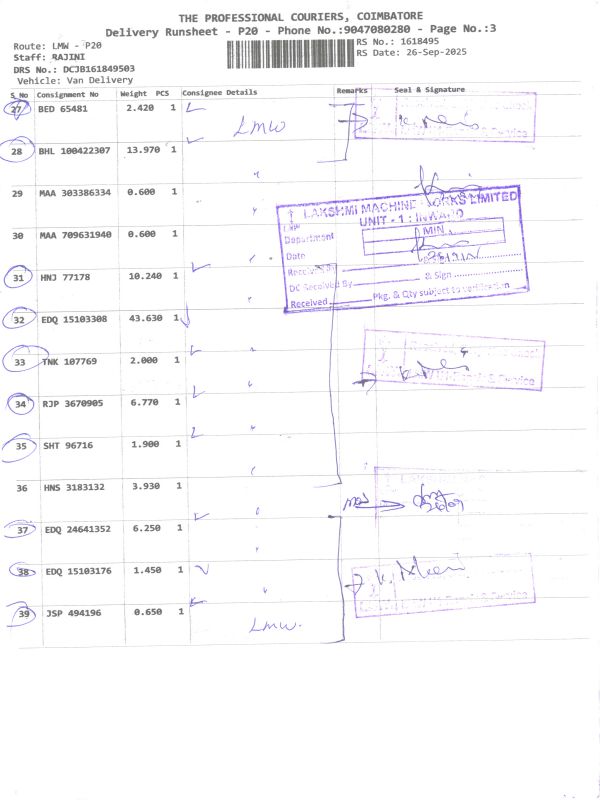 THE PROFESSIONAL COURIERS, COIMBATORE
Delivery Runsheet - P20 - Phone No.:9047080280 - Page No.:3
Route: LMW - P20
RS No.: 1618495
Staff: RAJINI
RS Date: 26-Sep-2025
DRS No.: DCJB161849503
Vehicle: Van Delivery
S_No Consignment No Weight PCS Consignee Details Remarks Seal & Signature
27 BED 65481 2.420 1 LMW
28 BHL 100422307 13.970 1 "
29 MAA 303386334 0.600 1 "
LAKSHMI MACHINE WORKS LIMITED
UNIT - 1 : INWARD
30 MAA 709631940 0.600 1
Department MIN
Date
31 HNJ 77178 10.240 1 "
Received By
DC Received By & Sign
Received Pkg. & Qty subject to verification
32 EDQ 15103308 43.630 1
33 TNK 107769 2.000 1 "
34 RJP 3670905 6.770 1 "
35 SHT 96716 1.900 1 "
36 HNS 3183132 3.930 1 "
26/09
37 EDQ 24641352 6.250 1 "
38 EDQ 15103176 1.450 1 "
39 JSP 494196 0.650 1 LMW.